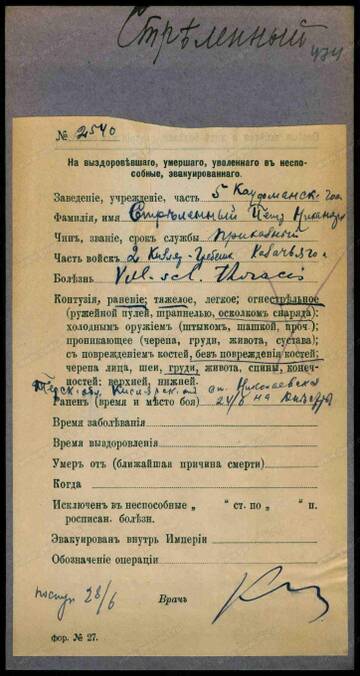 Стрѣленный
434
№ 2540
На выздоровѣвшаго, умершаго, уволеннаго въ неспо-
собные, эвакуированнаго.
Заведеніе, учрежденіе, часть 5
Фамилія, имя Стрѣленный Петръ
Чинъ, званіе, срокъ службы приказный
Часть войскъ 2 Кизляр-Гребенск. Казачьяго п
Болѣзнь Vul. scl. thoracis
Контузія, раненіе; тяжелое, легкое; огнестрѣльное
(ружейной пулей, шрапнелью, осколкомъ снаряда);
холоднымъ оружіемъ (штыкомъ, шашкой, проч.)
проникающее (черепа, груди, живота, сустава);
съ поврежденіемъ костей, безъ поврежденія костей;
черепа лица, шеи, груди, живота, спины, конеч-
ностей: верхней, нижней.
Терск. обл. ст. Николаевска
Раненъ (время и мѣсто боя) 24/6 на
Время заболѣванія
Время выздоровленія
Умеръ отъ (ближайшая причина смерти)
Когда
Исключенъ въ неспособные „ “ ст. по „ “ п.
росписан. болѣзн.
Эвакуированъ внутрь Имперіи
Обозначеніе операціи
поступ 28/6
Врачъ
фор. № 27.